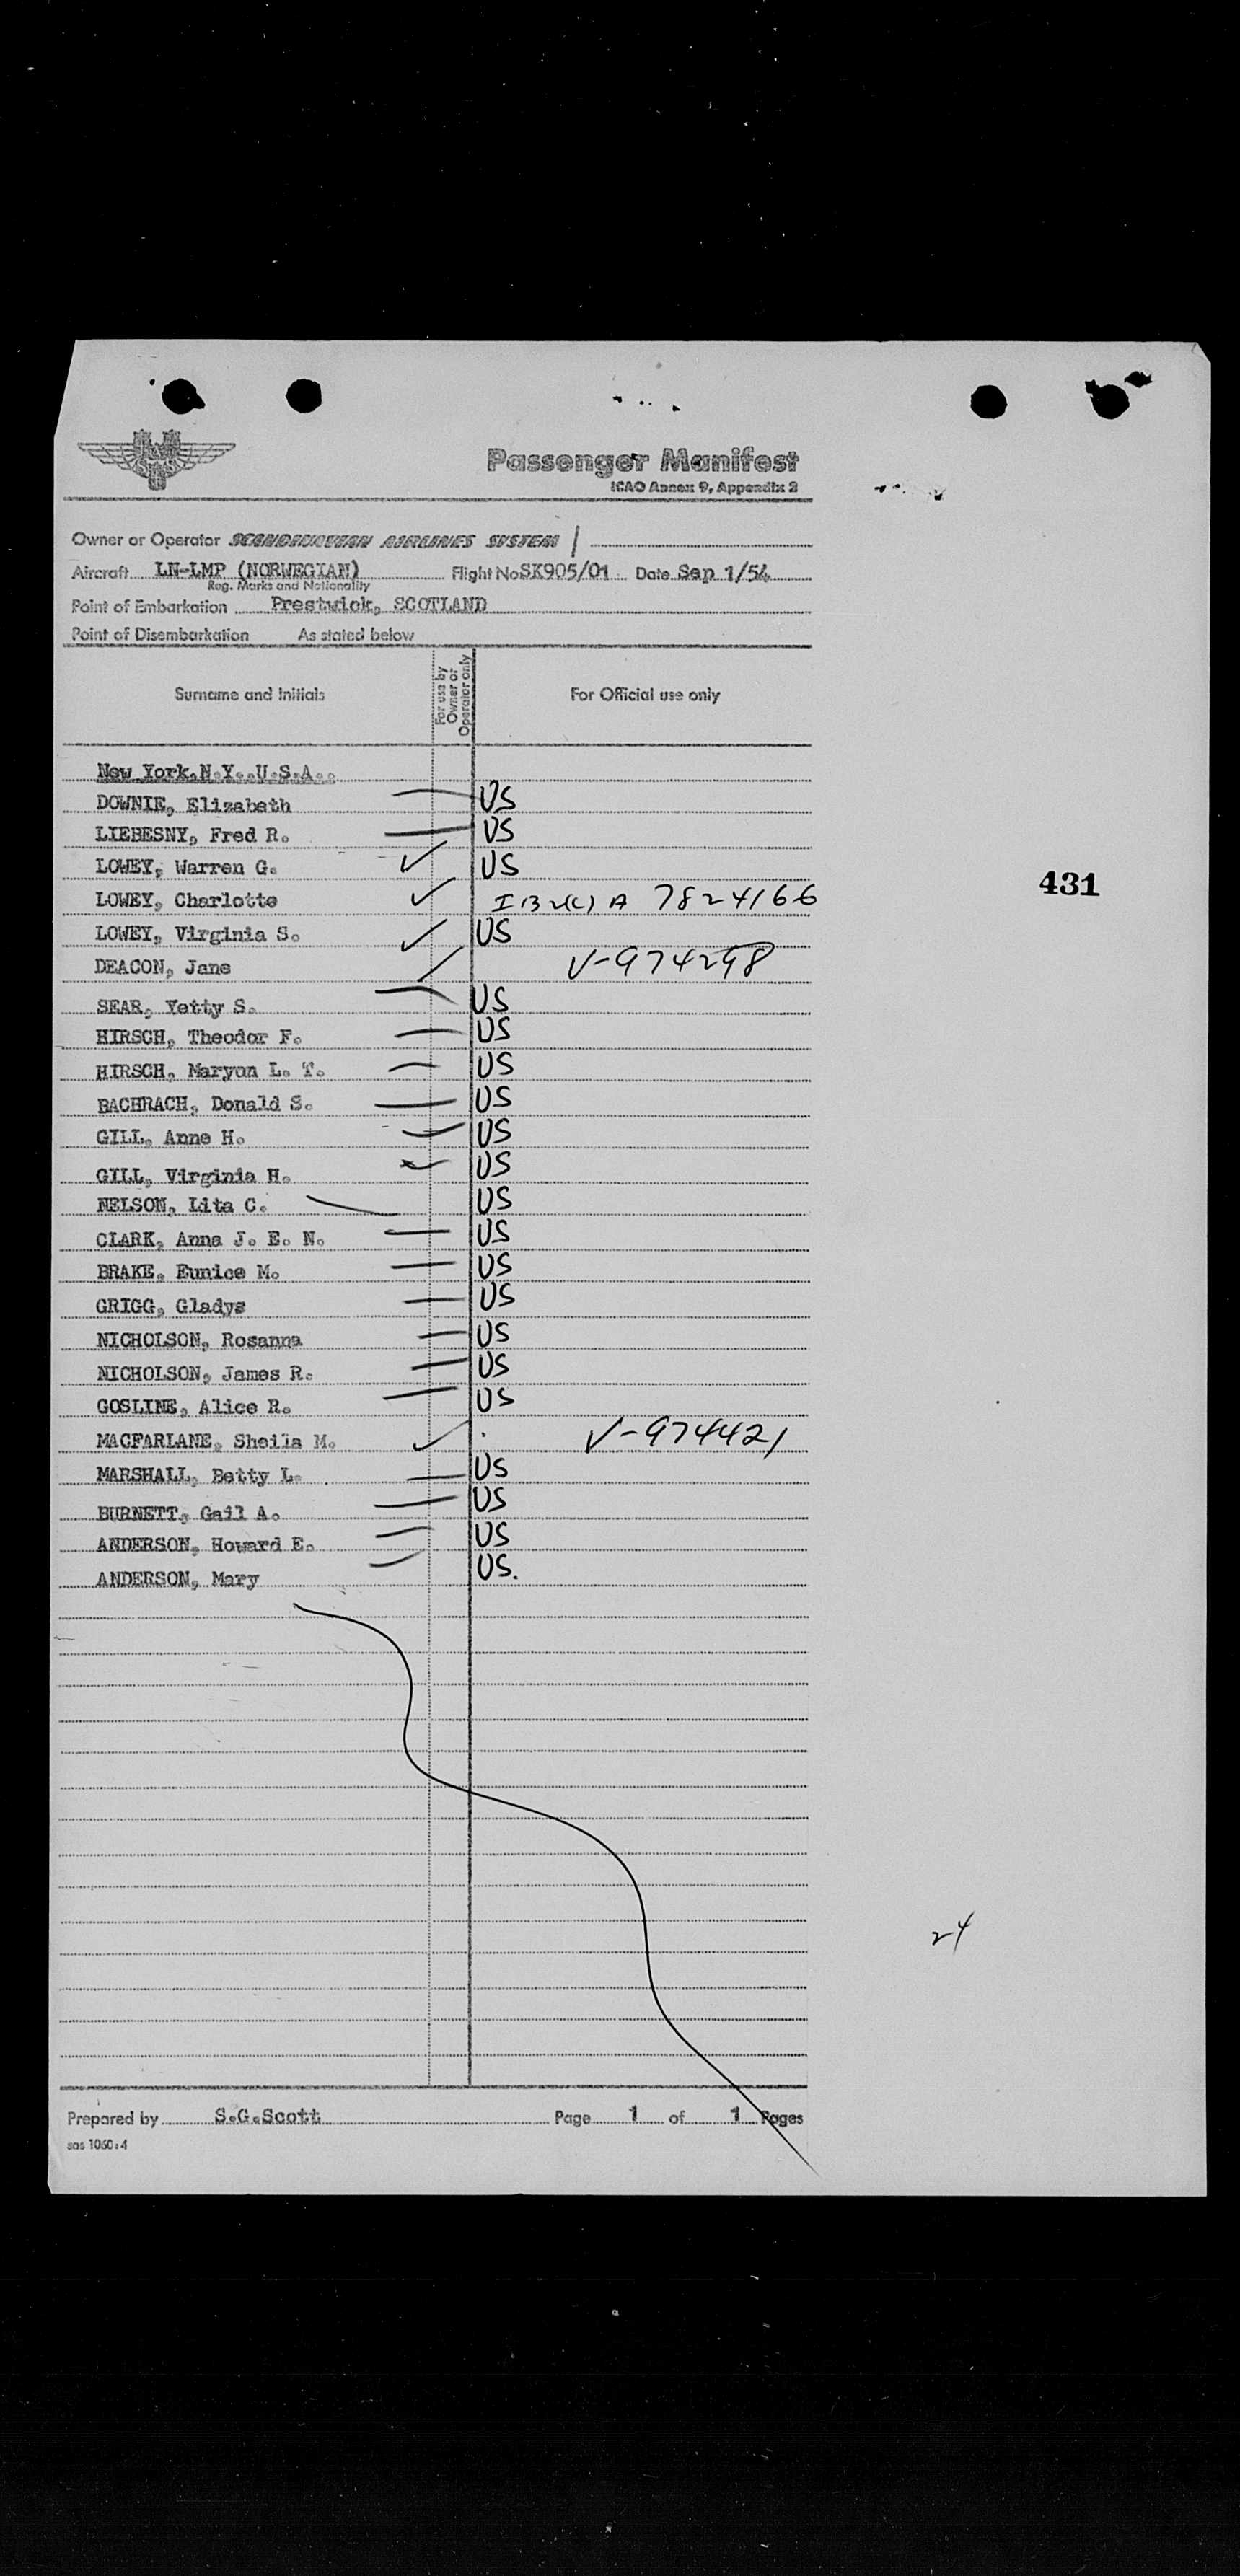 Passenger Manifest
ICAO Annex 9, Appendix 2
Owner or Operator SCANDINAVIAN AIRLINES SYSTEM /
Aircraft LN-LMP (NORWEGIAN) Flight No SK905/01 Date Sep 1/54
Reg. Marks and Nationality
Point of Embarkation Prestwick, SCOTLAND
Point of Disembarkation As stated below
Surname and Initials For use by Owner or Operator only For Official use only
New York.N.Y..U.S.A..
DOWNIE, Elizabeth US
LIEBESNY, Fred R. US
LOWEY, Warren G. ✓ US
LOWEY, Charlotte ✓ A 7824166
431
LOWEY, Virginia S. ✓ US
DEACON, Jane V-974298
SEAR, Yetty S. US
HIRSCH, Theodor F. US
HIRSCH, Maryon L. T. US
BACHRACH, Donald S. US
GILL, Anne H. US
GILL, Virginia H. US
NELSON, Lita C. US
CLARK, Anna J. E. N. US
BRAKE, Eunice M. US
GRIGG, Gladys US
NICHOLSON, Rosanna US
NICHOLSON, James R. US
GOSLINE, Alice R. US
MACFARLANE, Sheila M. ✓ V-974421
MARSHALL, Betty L. US
BURNETT, Gail A. US
ANDERSON, Howard E. US
ANDERSON, Mary US.
24
Prepared by S.G.Scott Page 1 of 1 Pages
sas 1060:4